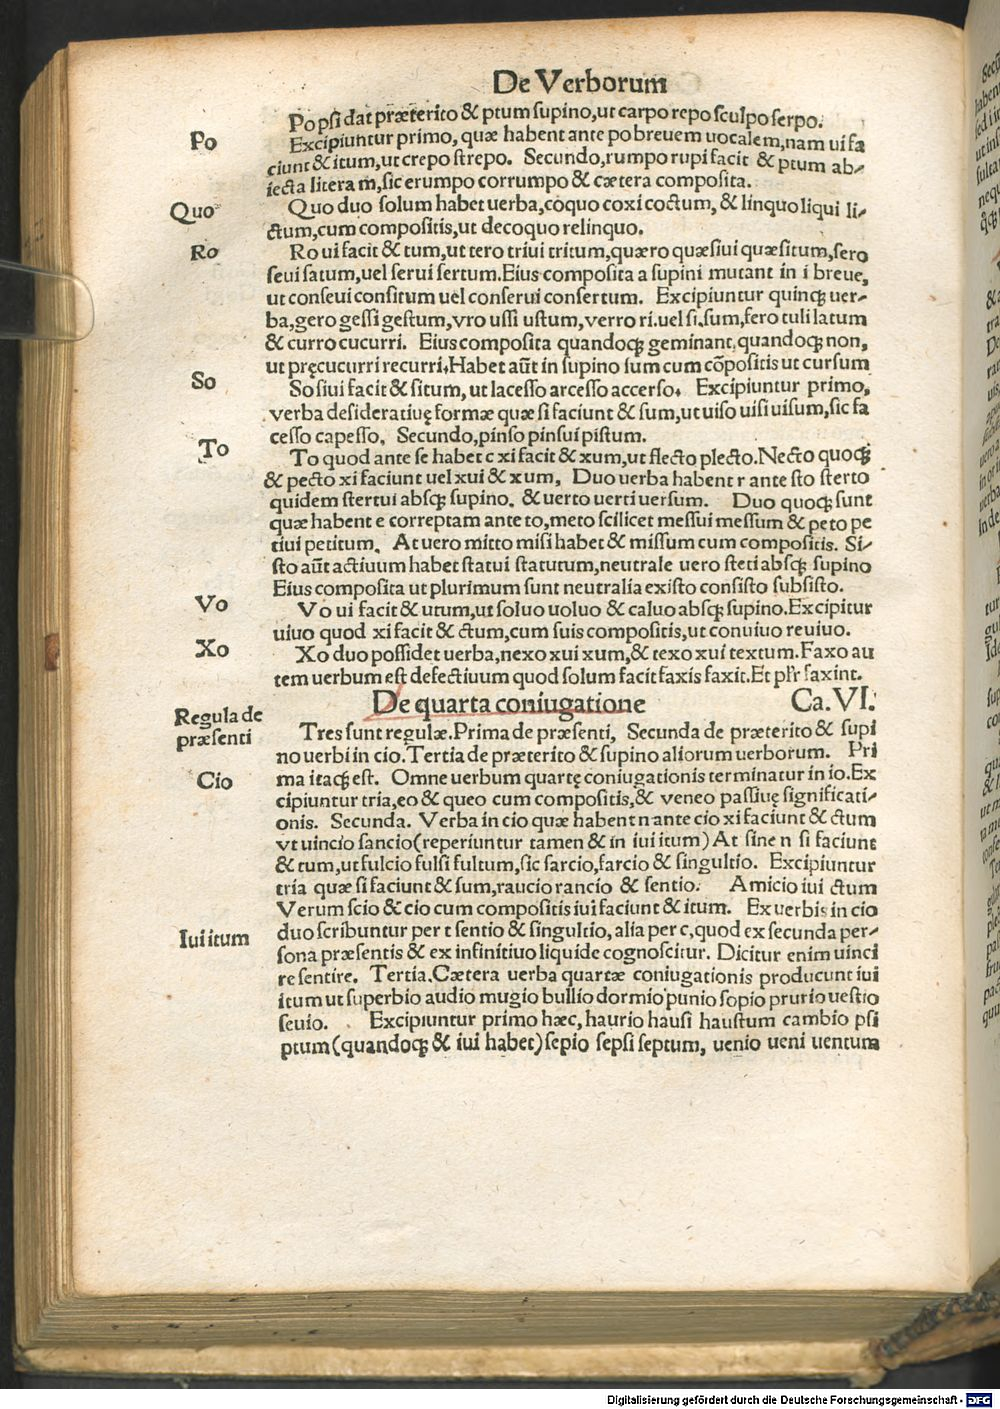 De Verborum
Po
Po psi dat præterito & ptum supino, ut carpo repo sculpo serpo.
Excipiuntur primo, quæ habent ante po breuem uocalem, nam ui fa
ciunt & itum, ut crepo strepo. Secundo, rumpo rupi facit & ptum ab-
iecta litera m, sic erumpo corrumpo & cætera composita.
Quo
Quo duo solum habet uerba, coquo coxi coctum, & linquo liqui li-
ctum, cum compositis, ut decoquo relinquo.
Ro
Ro ui facit & tum, ut tero triui tritum, quæro quæsiui quæsitum, sero
seui satum, uel serui sertum. Eius composita a supini mutant in i breue,
ut conseui consitum uel conserui consertum. Excipiuntur quinqꝫ uer-
ba, gero gessi gestum, vro ussi ustum, verro ri. uel si. sum, fero tuli latum
& curro cucurri. Eius composita quandoqꝫ geminant, quandoqꝫ non,
ut pręcucurri recurri. Habet aūt in supino sum cum cōpositis ut cursum
So
So siui facit & situm, ut lacesso arcesso accerso. Excipiuntur primo,
verba desideratiuę formæ quæ si faciunt & sum, ut uiso uisi uisum, sic fa
cesso capesso. Secundo, pinso pinsui pistum.
To
To quod ante se habet c xi facit & xum, ut flecto plecto. Necto quoqꝫ
& pecto xi faciunt uel xui & xum. Duo uerba habent r ante sto sterto
quidem stertui absqꝫ supino. & uerto uerti uersum. Duo quoqꝫ sunt
quæ habent e correptam ante to, meto scilicet messui messum & peto pe
tiui petitum. At uero mitto misi habet & missum cum compositis. Si-
sto aūt actiuum habet statui statutum, neutrale uero steti absqꝫ supino
Eius composita ut plurimum sunt neutralia existo consisto subsisto.
Vo
Vo ui facit & utum, ut soluo uoluo & caluo absqꝫ supino. Excipitur
uiuo quod xi facit & ctum, cum suis compositis, ut conuiuo reuiuo.
Xo
Xo duo possidet uerba, nexo xui xum, & texo xui textum. Faxo au
tem uerbum est defectiuum quod solum facit faxis faxit. Et plr̄ faxint.
De quarta coniugatione Ca. VI.
Regula de
præsenti
Tres sunt regulæ. Prima de præsenti, Secunda de præterito & supi
no uerbi in cio. Tertia de præterito & supino aliorum uerborum. Pri
ma itaqꝫ est. Omne uerbum quartę coniugationis terminatur in io. Ex
Cio
cipiuntur tria, eo & queo cum compositis, & veneo passiuę significati-
onis. Secunda. Verba in cio quæ habent n ante cio xi faciunt & ctum
vt uincio sancio (reperiuntur tamen & in iui itum) At sine n si faciunt
& tum, ut fulcio fulsi fultum, sic sarcio, farcio & singultio. Excipiuntur
tria quæ si faciunt & sum, raucio rancio & sentio. Amicio iui ctum
Verum scio & cio cum compositis iui faciunt & itum. Ex uerbis in cio
Iui itum
duo scribuntur per t sentio & singultio, alia per c, quod ex secunda per-
sona præsentis & ex infinitiuo liquide cognoscitur. Dicitur enim uinci
re sentire. Tertia. Cætera uerba quartæ coniugationis producunt iui
itum ut superbio audio mugio bullio dormio punio sopio prurio uestio
seuio. Excipiuntur primo hæc, haurio hausi haustum cambio psi
ptum (quandoqꝫ & iui habet) sepio sepsi septum, uenio ueni uentum
Digitalisierung gefördert durch die Deutsche Forschungsgemeinschaft - DFG